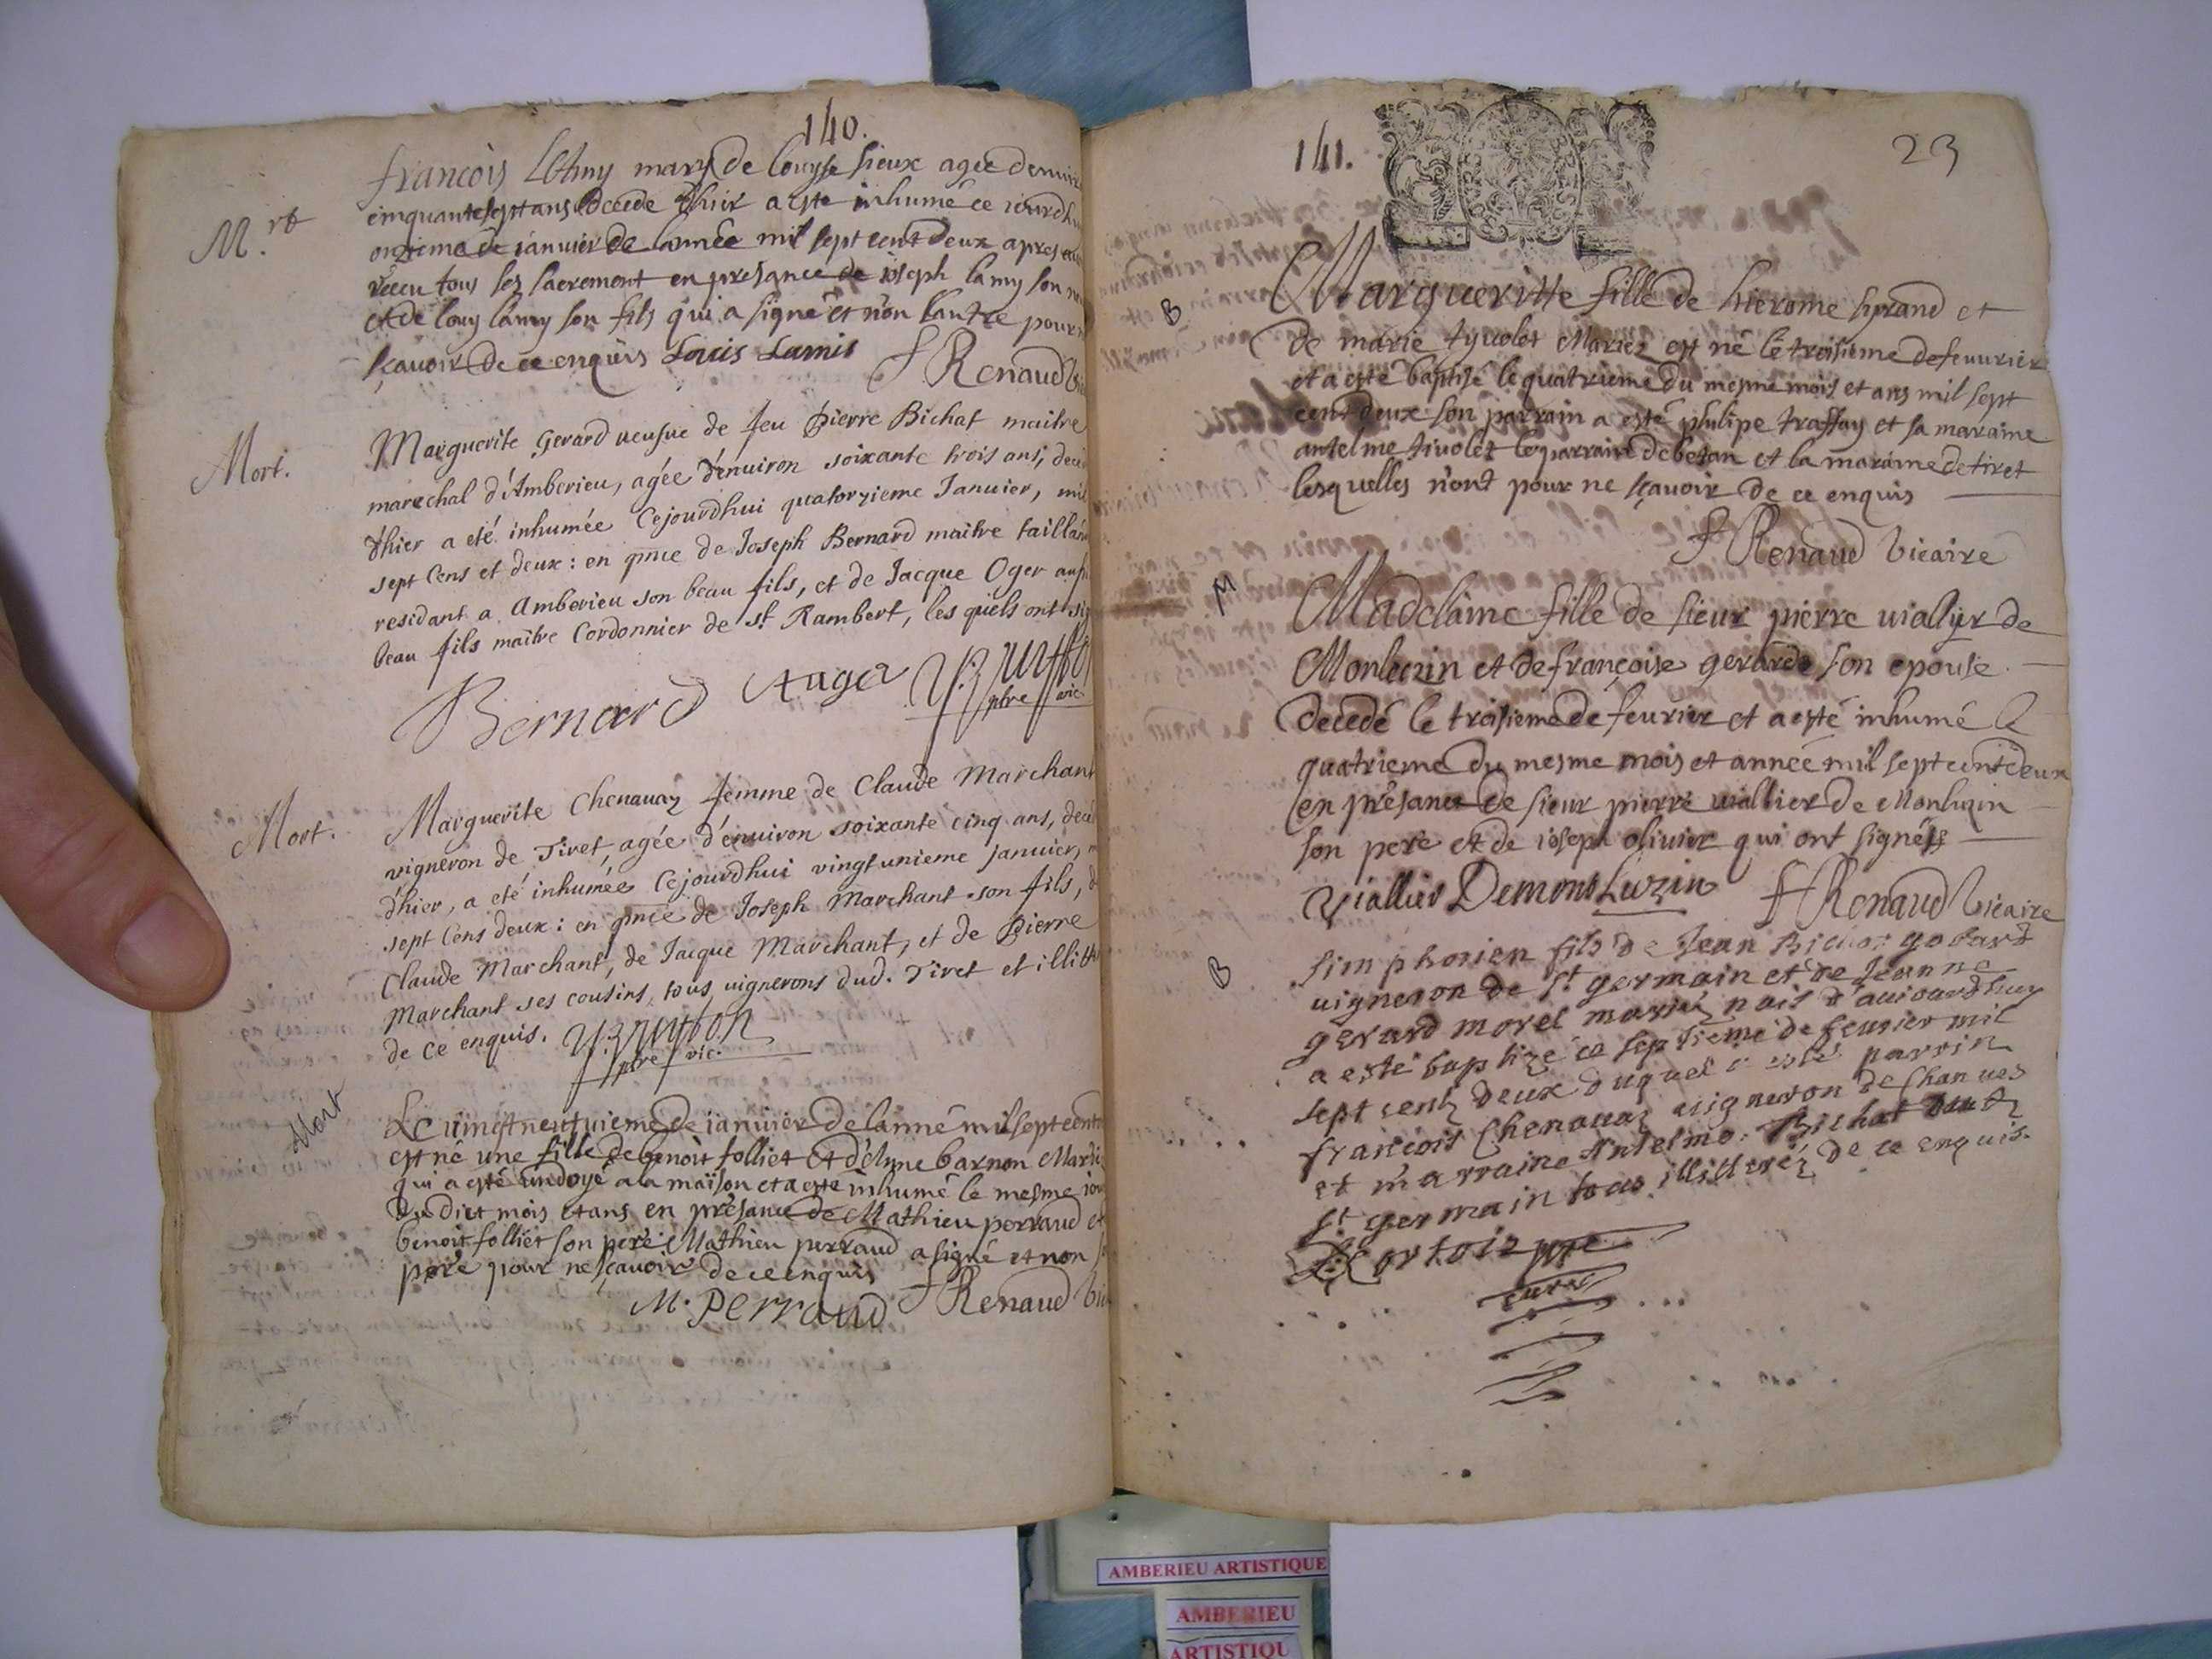 140.
M.rt
françois Lamy mary de louyse sieux agee denuir
cinquante sept ans decede dhier a este inhumé ce iourdh
onzieme de ianuier de lannée mil sept cent deux apres
receu tous les sacrement en presance de ioseph lamy son
et de louy lamy son fils qui a signé et non lautre pour
sçauoir de ce enquis Louis Lamis
f Renaud
Mort.
Marguerite Gerard ueufue de feu Pierre Bichat maitre
marechal d'Amberieu, agée d'enuiron soixante trois ans, dece
d'hier a eté inhumée Cejourdhui quatorzieme Januier, mil
sept Cens et deux : en pnce de Joseph Bernard maitre taillan
residant a Amberieu son beau fils, et de Jacque Oger au
beau fils maitre Cordonnier de st Rambert, les quels ont si
Bernard Auger
ptre vic
Mort.
Marguerite Chenauaz femme de Claude Marchant
vigneron de Tiret, agée d'enuiron soixante cinq ans, dece
d'hier, a eté inhumée Cejourdhui vingt unieme januier,
sept Cens deux : en pnce de Joseph Marchant son fils, d
Claude Marchant, de Jacque Marchant, et de Pierre
Marchant ses cousins, tous vignerons dud. Tiret et illit
de ce enquis.
ptre vic.
Mort
Le uingt neufuieme de ianuier de lanné mil sept cent
est né une fille de benoit folliet et d'
barnon Mari
qui a esté undoyé a la maison et a este inhumé le mesme io
du dict mois et ans en présance de Mathieu perraud et
benoit folliet son pere Mathieu perraud a signé et non
père pour ne sçauoir de ce enquis
M. Perraud f Renaud
141.
23
B
Marguerite fille de hierome
et
de marie tyuolet Mariez est né le troisieme de feuurier
et a esté baptisé le quatrieme du mesme mois et ans mil sept
cent deux son parrain a esté philipe traffay et sa maraine
antelme tiuolet le parrain de betan et la maraine de tiret
lesquelles n'ont pour ne sçauoir de ce enquis
f Renaud Vicaire
M
Madelaine fille de sieur pierre uiallier de
Monluzin et de françoise gerarde son epouse
decedé le troisieme de feurier et a esté inhumé le
quatrieme du mesme mois et année mil sept cent deux
en présance de sieur pierre uiallier de Monluzin
son pere et de ioseph oliuier qui ont signés
Viallier Demont Luzin f Renaud Vicaire
B
simphorien fils de Jean Bichat gobard
uigneron de st germain et de Jeanne
gerard morel mariéz nais d'auiourdhuy
a esté baptizé ce septieme de feurier mil
sept centz deux duquel a esté parrin
françois Chenauaz uigneron de Chanues
et marraine Antelme Bichat dudt
st germain tous illitteréz de ce enquis.
AMBERIEU ARTISTIQUE
AMBERIEU
ARTISTIQU